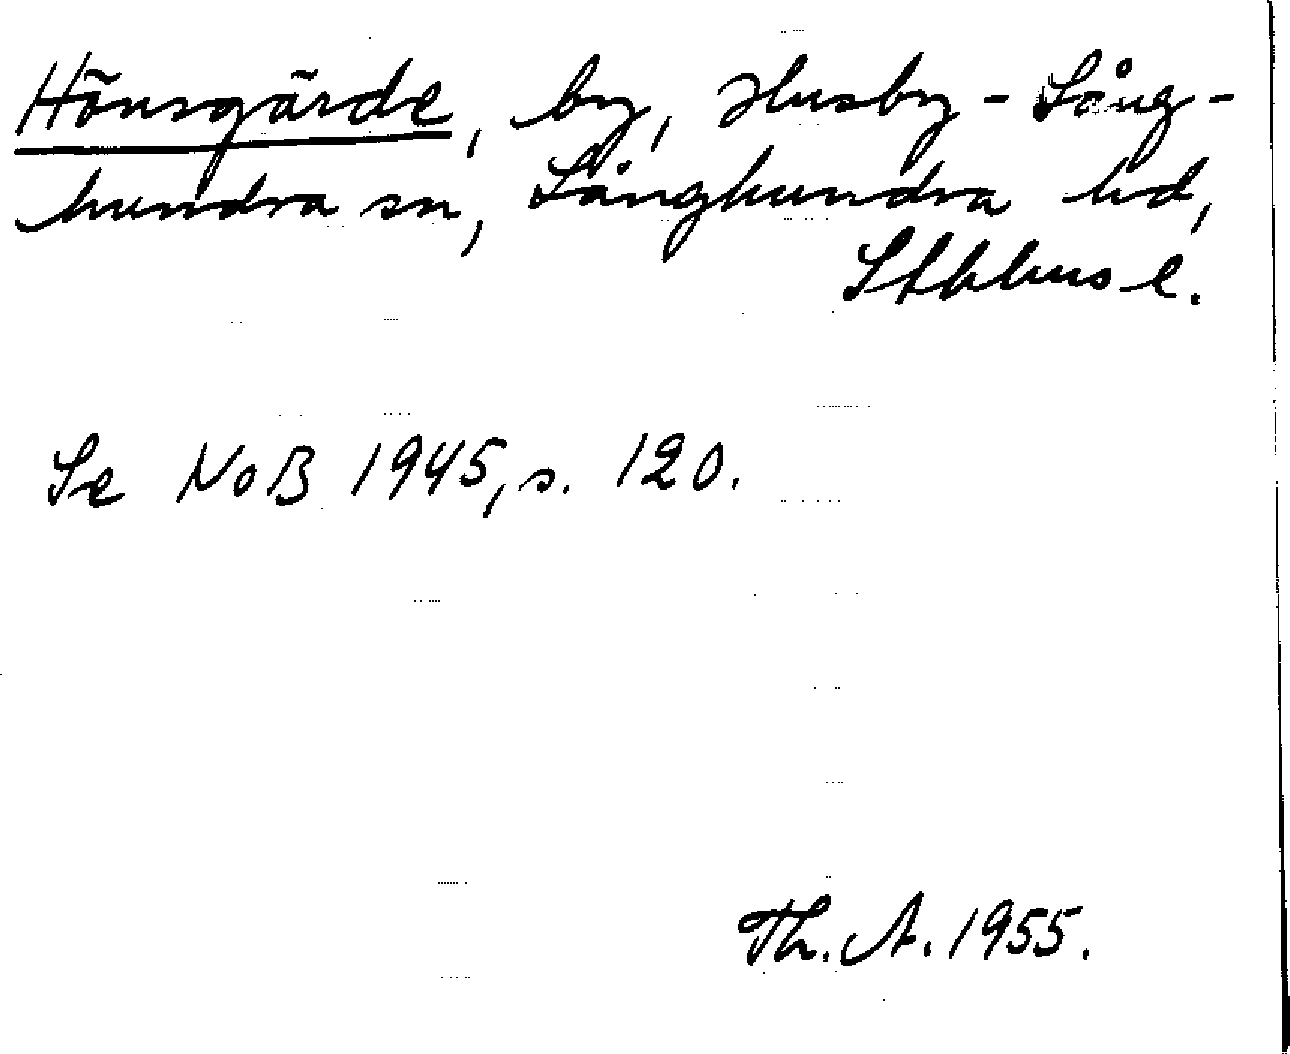 Hönsgärde, by, Husby-Lång-
hundra sn, Långhundra hd,
Sthlms l.
Se NoB 1945, s. 120.
Th. A. 1955.